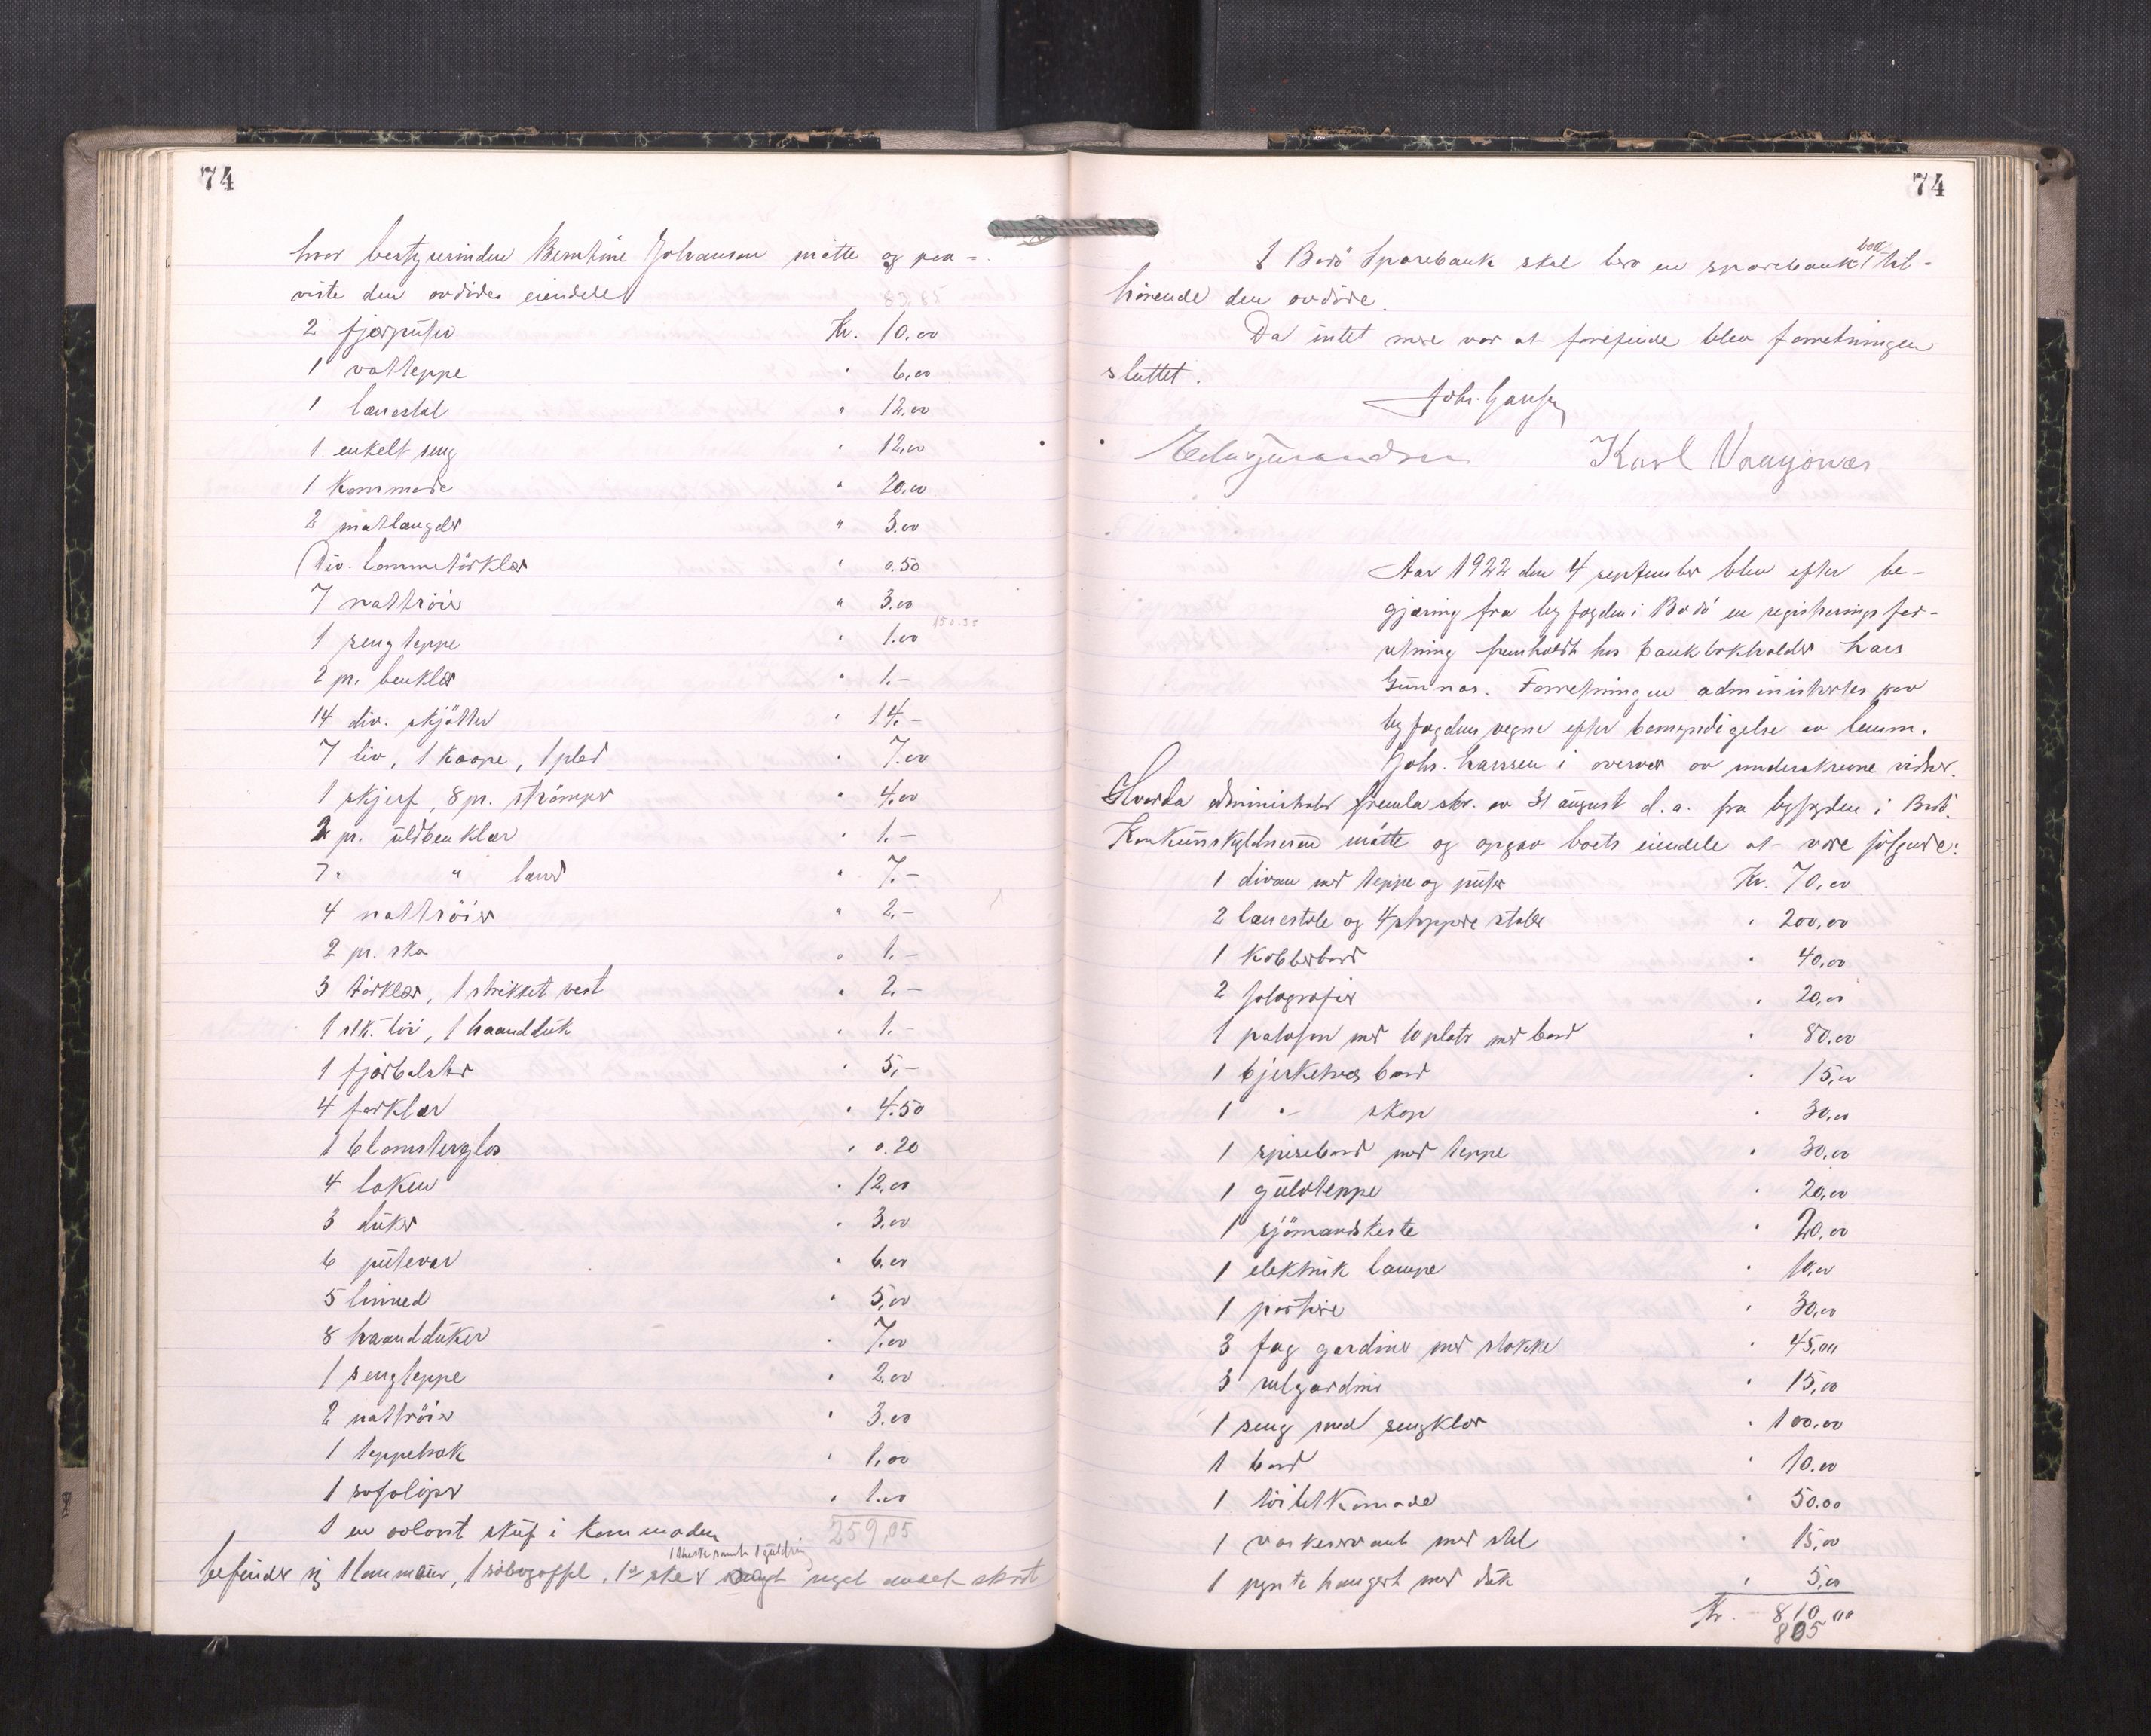 74
hvor bestyrerinden Berntine Johansen møtte og paa-
viste den avdødes eiendele
2 fjærputer Kr. 10.00
1 vatteppe " 6,00
1 lænestol " 12.00
1 enkelt seng " 12,00
1 Kommode " 20,00
2 matlaugder " 3.00
Div. lommetörklær " 0.50
7 nattröier " 3.00
150.50
1 sengteppe " 1.00
2 pr. benklær " 1.-
14 div. skjörter " 14.-
7 liv, 1 kaape, 1 pled " 7.00
1 skjerf, 8 pr. strömper " 4,00
2 pr. uldbenklær " 1.-
7 " " " 7.-
4 nattröier " 2.-
2 pr. sko " 1.-
3 törklær, 1 strikket vest " 2.-
1 stk. töi, 1 haandduk " 1.-
1 fjærbolster " 5,-
4 forklær " 4.50
1 blomsterglas " 0.20
4 laken " 12,00
3 duker " 3,00
6 putevar " 6.00
5 linned " 5,00
8 haandduker " 7.00
1 sengteppe " 2.00
2 nattröier " 3.00
1 teppebak " 1,00
1 sofalöper " 1.00
I en avlaast skuf i kommoden 259,05
1 guldring
befinder sig 1 lommeur, 1 sölvgaffel, 1 skee
74
I Bodö Sparebank skal bero en sparebank bok til-
hörende den avdöde.
Da intet mere var at forefinde blev forretningen
sluttet.
Joh. Hansen
Karl Vaagönes
Aar 1922 den 4 september blev efter be-
gjæring fra byfogden i Bodö en registreringsfor-
retning fremholdt hos bankbokholder Lars
Gunnar. Forretningen administrertes paa
byfogdens vegne efter bemyndigelse av lensm.
Joh. Hanssen i overvær av underskrevne vidner.
Hvorda administrator fremla skr. av 31 august d.a. fra byfogden i Bodö.
Konkursskyldneren møtte og opgav boets eiendele at være fölgende:
1 divan med teppe og puter Kr. 70,00
2 lænestole og 4 stoppede stoler " 200,00
1 Kobberbord " 40,00
2 fotografier " 20,00
1 patefon med 10 plater med bord " 80,00
1 bjerketræs bord " 15,00
1 " - skap " 30,00
1 spisebord med teppe " 30,00
1 gulvteppe " 20,00
1 sjömandskiste " 20,00
1 elektrisk lampe " 10,00
1 portiere " 30,00
3 fag gardiner med stokke " 45,00
3 rulgardiner " 15,00
1 seng med sengklær " 100.00
1 bord " 10.00
1 toiletkomode " 50.00
1 vaskeservant med stel " 15,00
1 pyntehaugert med duk " 5,00
Kr. 810,00
805